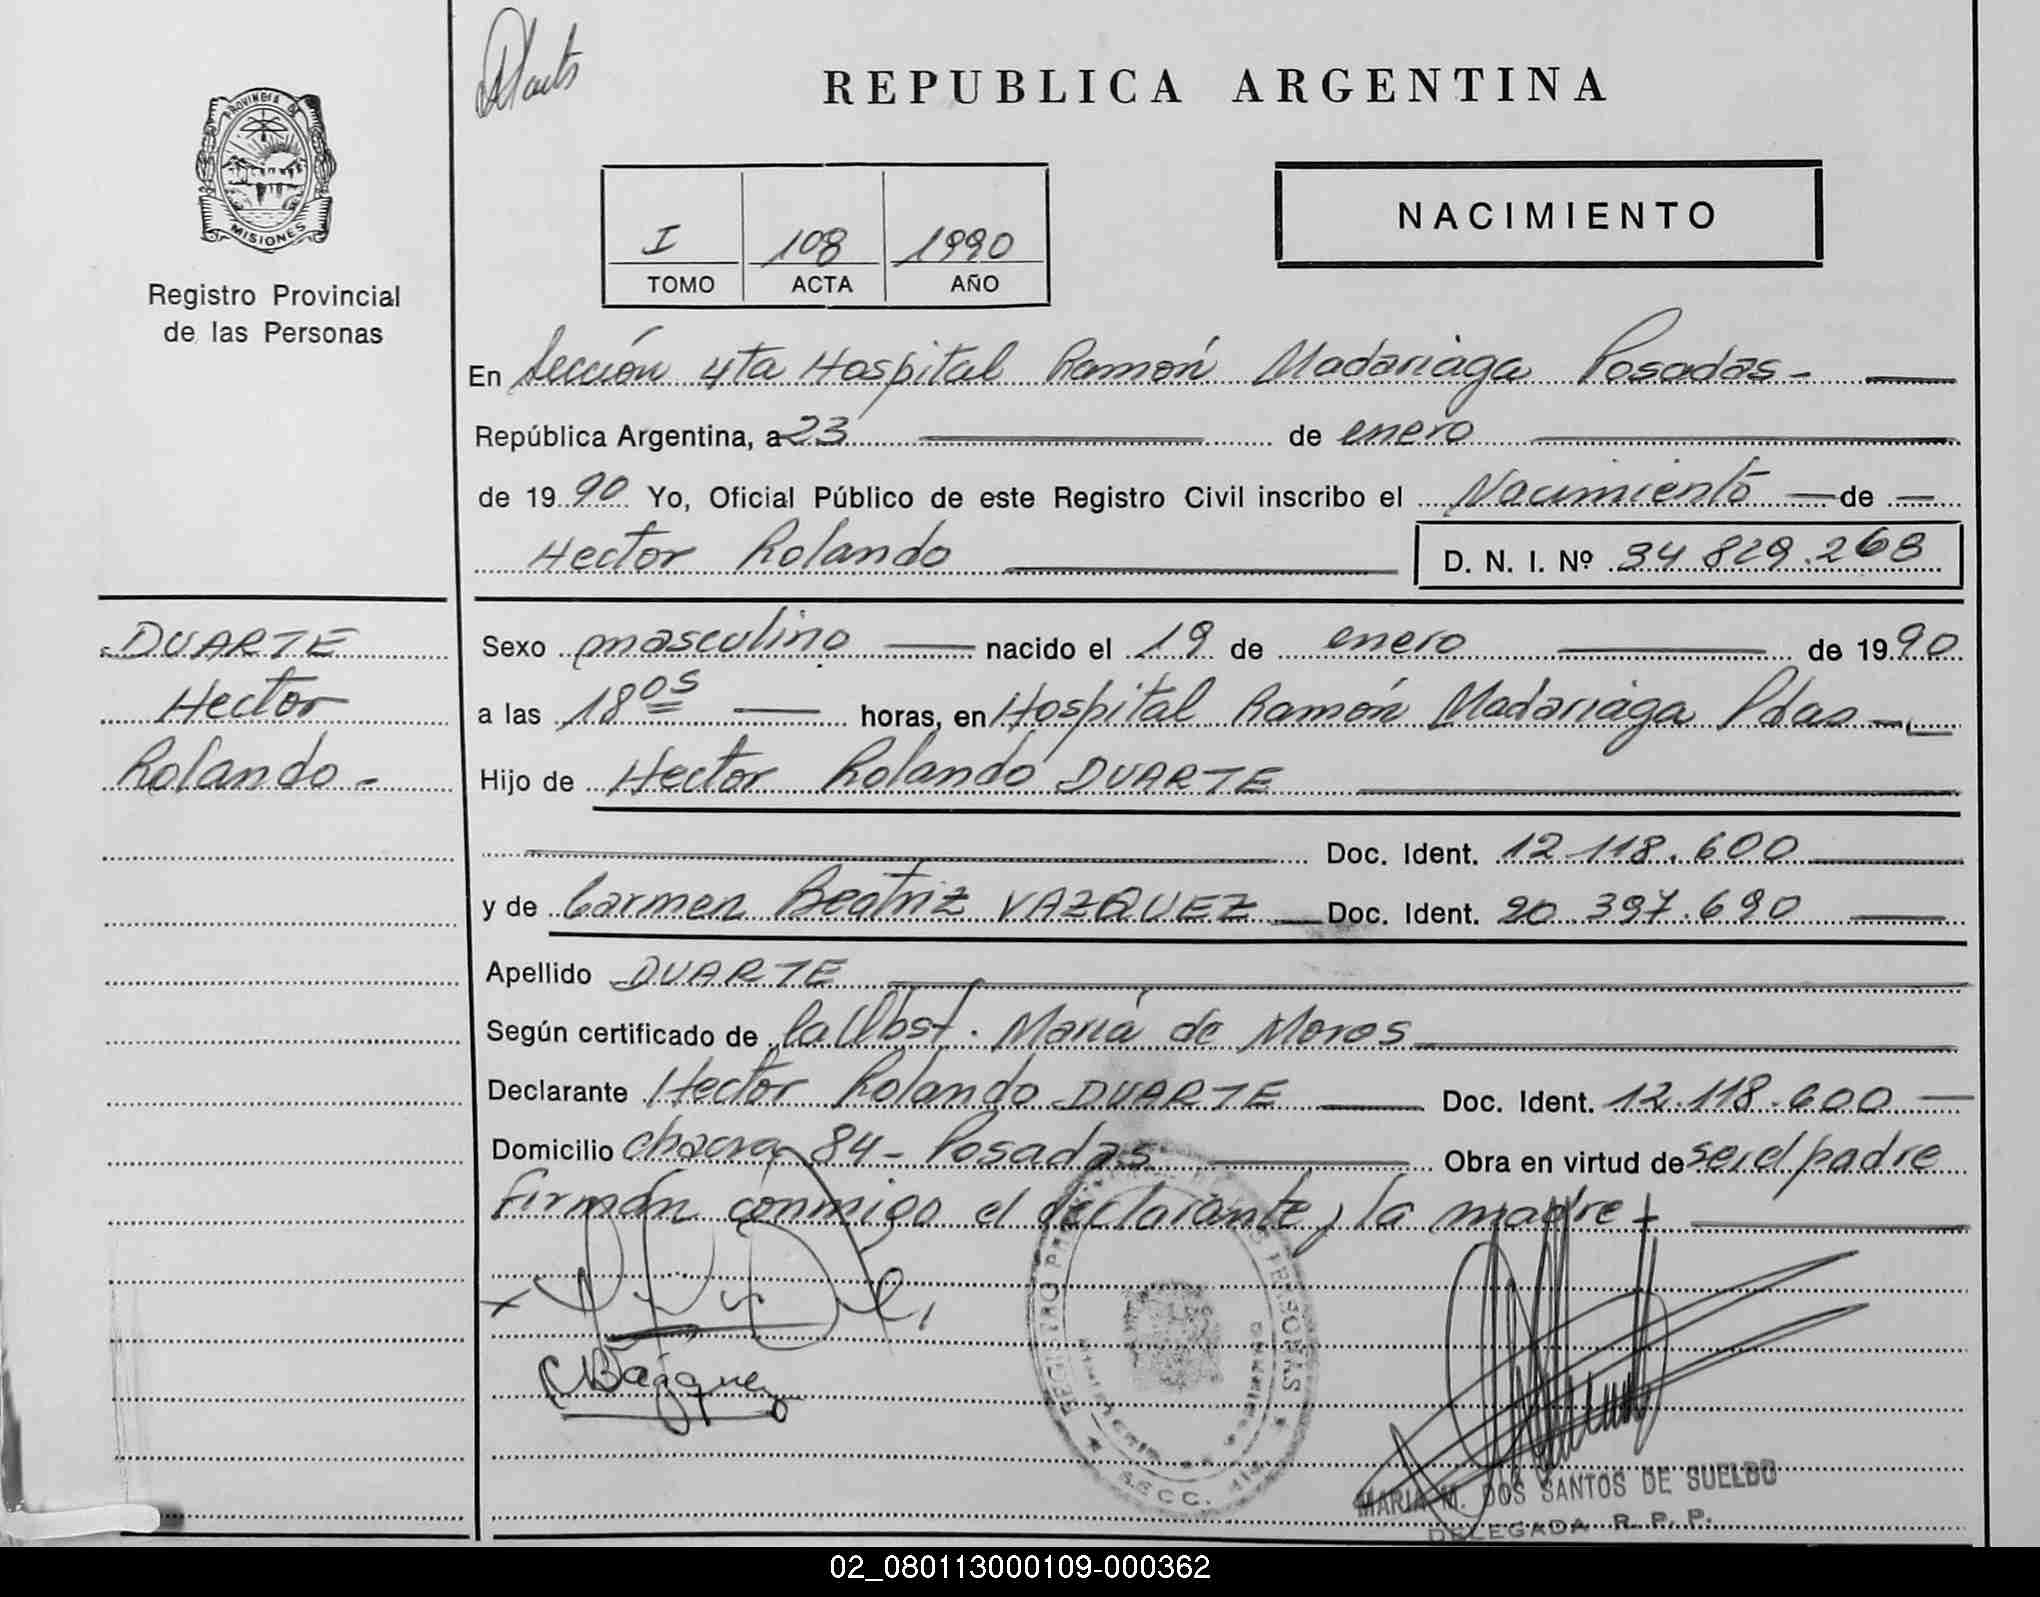 REPUBLICA ARGENTINA
PROVINCIA DE
MISIONES
Registro Provincial
de las Personas
I 108 1990
TOMO ACTA AÑO
NACIMIENTO
En Sección 4ta Hospital Ramón Madariaga Posadas-
República Argentina, a 23 de enero
de 1990 Yo, Oficial Público de este Registro Civil inscribo el Nacimiento de
Hector Rolando D. N. I. Nº 34 829.268
DUARTE
Hector
Rolando-
Sexo masculino nacido el 19 de enero de 1990
a las 18 05 horas, en Hospital Ramón Madariaga Pdas-
Hijo de Hector Rolando DUARTE
Doc. Ident. 12.118.600
y de Carmen Beatriz VAZQUEZ Doc. Ident. 20.397.690
Apellido DUARTE
Según certificado de la Obst. María de Moros
Declarante Hector Rolando DUARTE Doc. Ident. 12.118.600
Domicilio chacra 84- Posadas Obra en virtud de ser el padre
Firman conmigo el declarante y la madre
MARIA M. DOS SANTOS DE SUELDO
DELEGADA R. P. P.
02_080113000109-000362